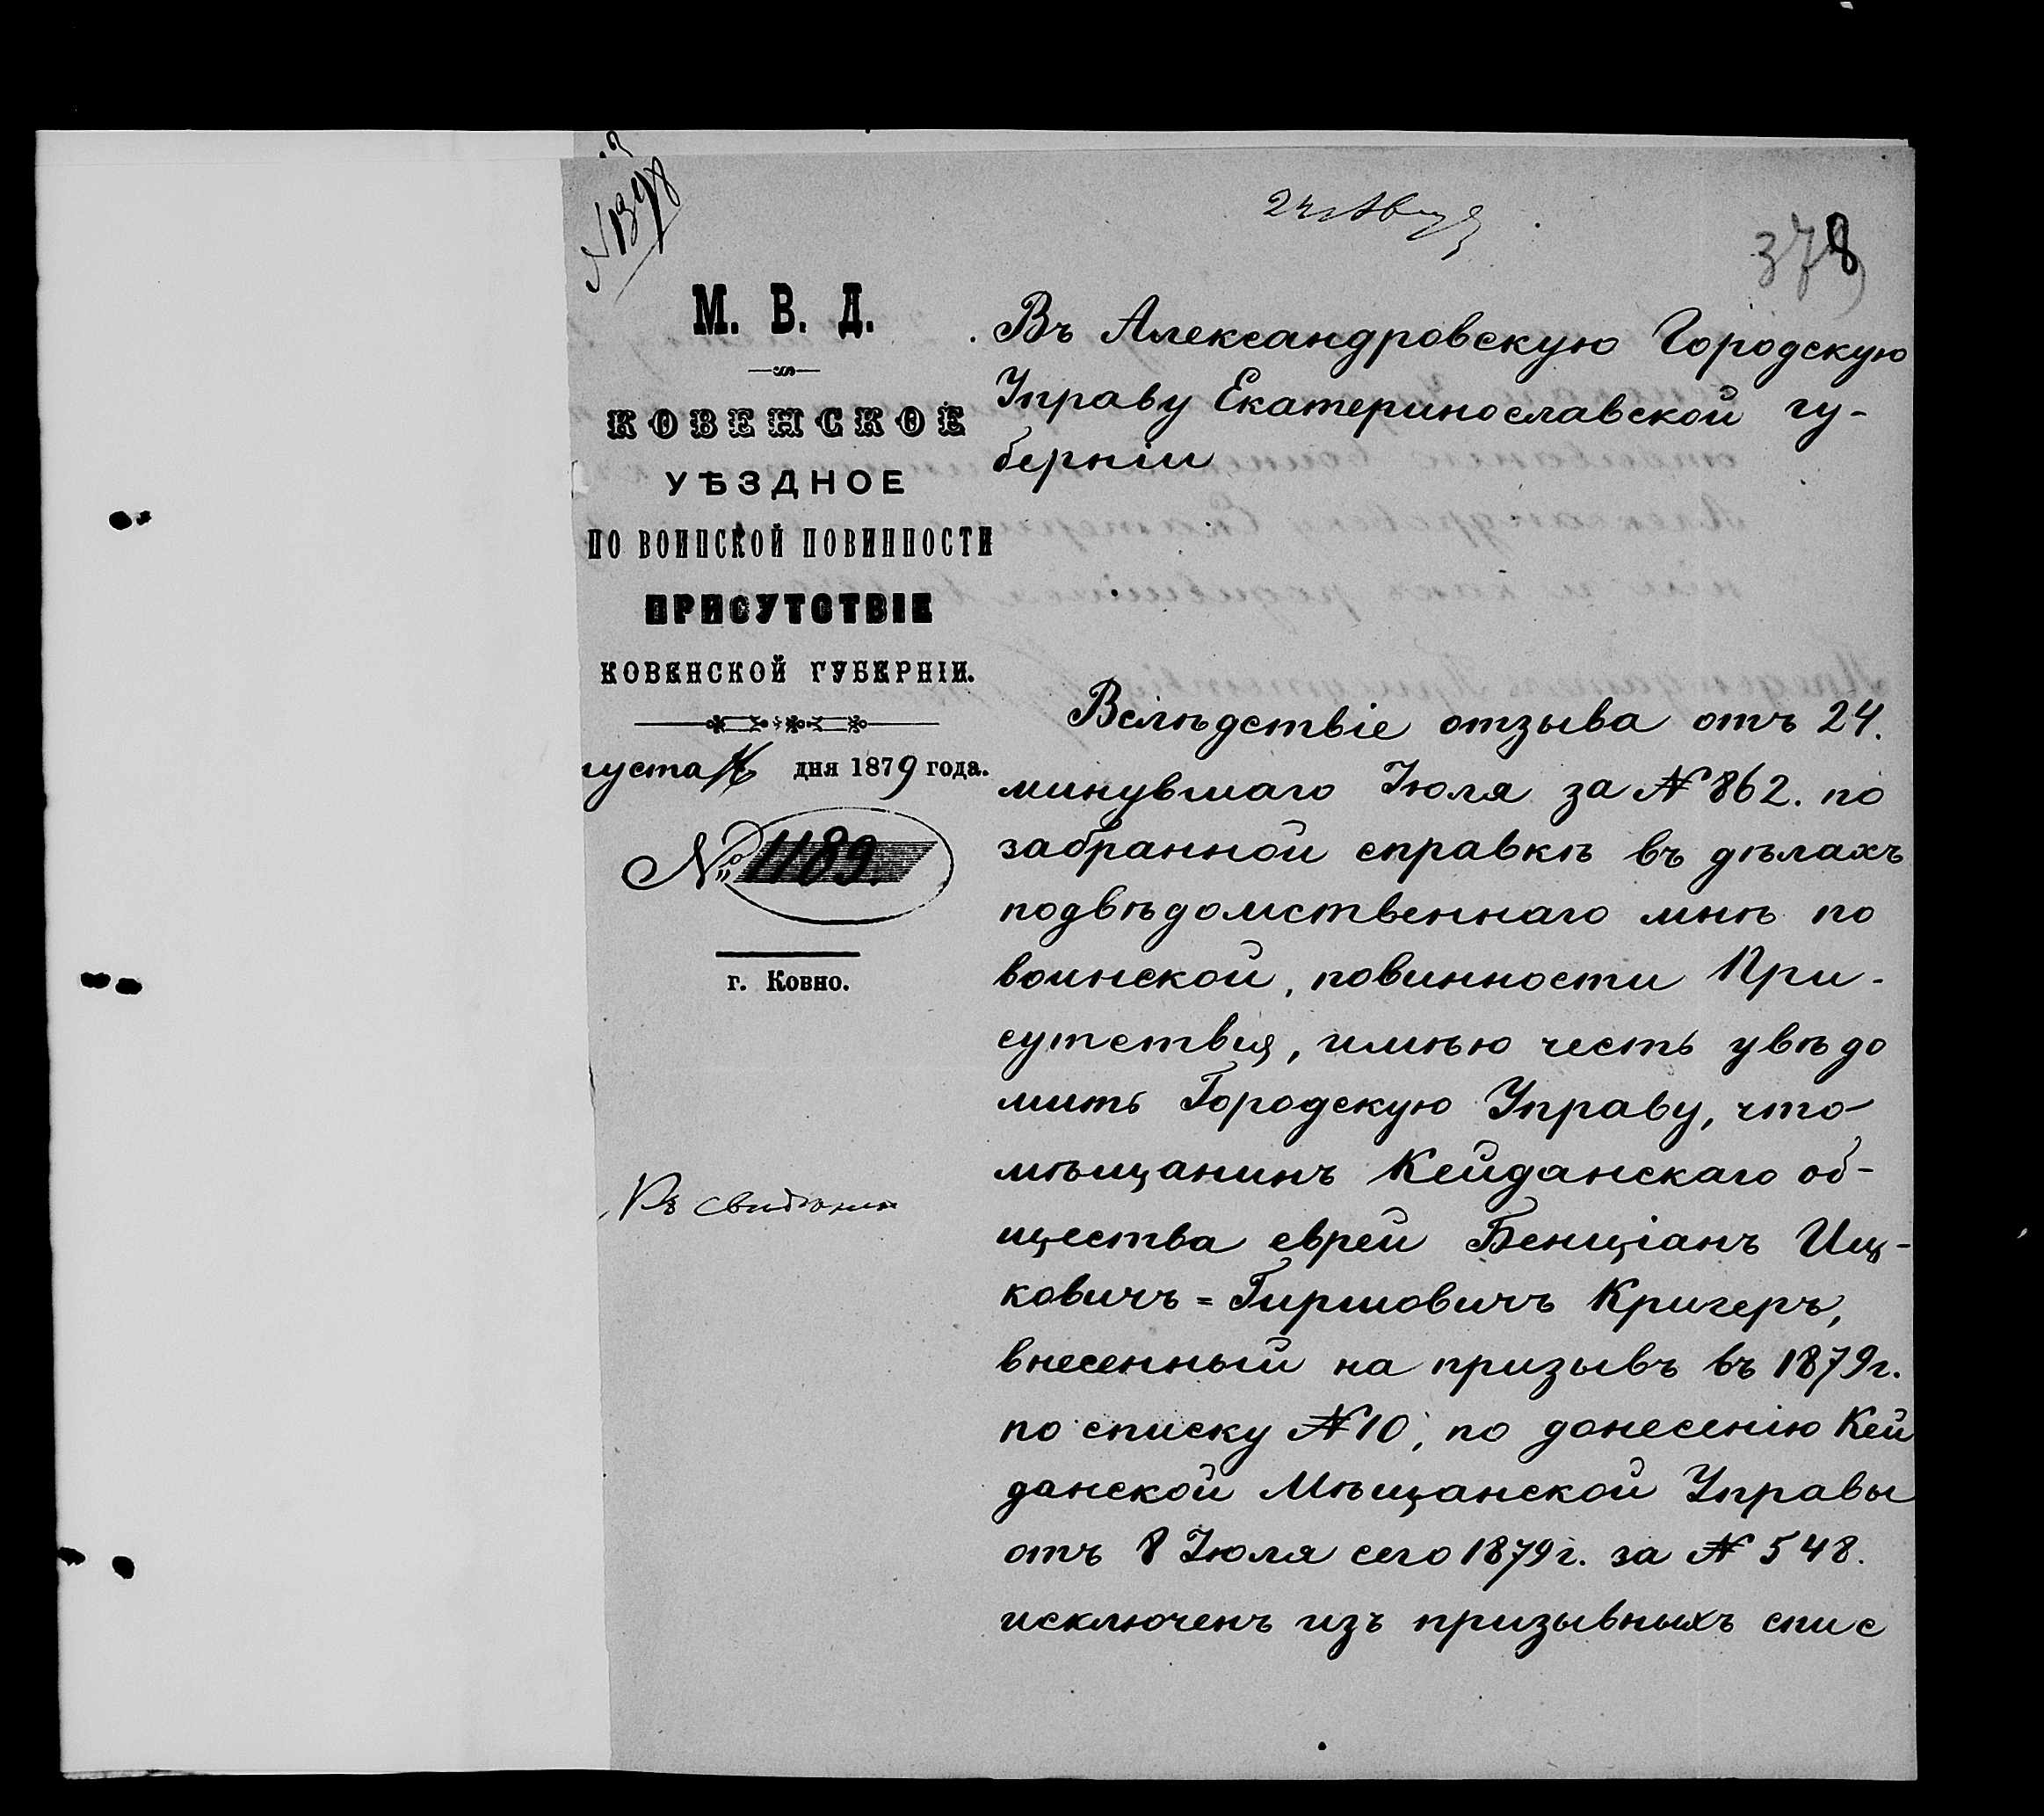 № 1398
24 Авг
378
М. В. Д.
КОВЕНСКОЕ
УѢЗДНОЕ
ПО ВОИНСКОЙ ПОВИННОСТИ
ПРИСУТСТВІЕ
КОВЕНСКОЙ ГУБЕРНІИ.
густа 16 дня 1879 года.
№ 1189.
г. Ковно.
Къ свидѣнию
Въ Александровскую Городскую
Управу Екатеринославской гу-
берніи
Вслѣдствіе отзыва отъ 24.
минувшаго Іюля за № 862. по
забранной справкѣ въ дѣлахъ
подвѣдомственнаго мнѣ по
воинской, повинности При-
сутствія, имѣю честь увѣдо
мить Городскую Управу, что
мѣщанинъ Кейданскаго об-
щества еврей Бенціанъ Иц-
ковичъ=Гиршовичъ Кригеръ,
внесенный на призывъ въ 1879г.
по списку № 10, по донесенію Кей
данской Мѣщанской Управы
отъ 8 Іюля сего 1879г. за № 548.
исключенъ изъ призывныхъ спис